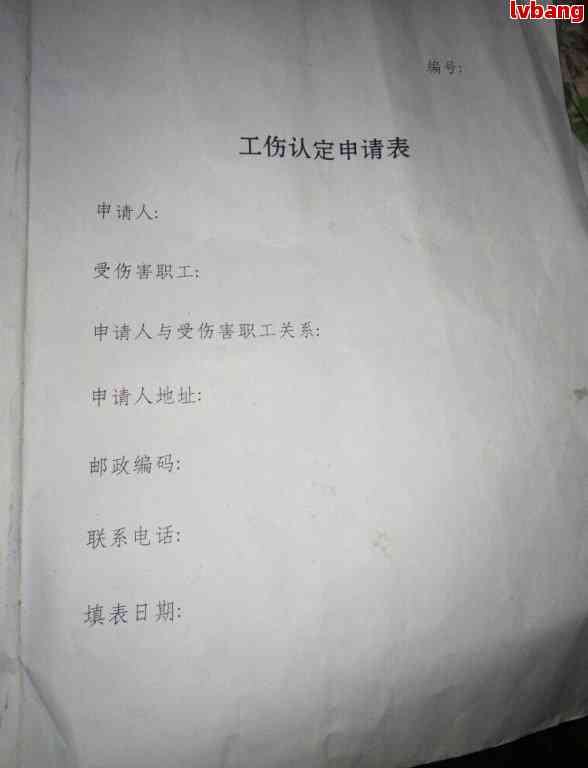 lvbang
编号:
工伤认定申请表
申请人:
受伤害职工:
申请人与受伤害职工关系:
申请人地址:
邮政编码:
联系电话:
填表日期: